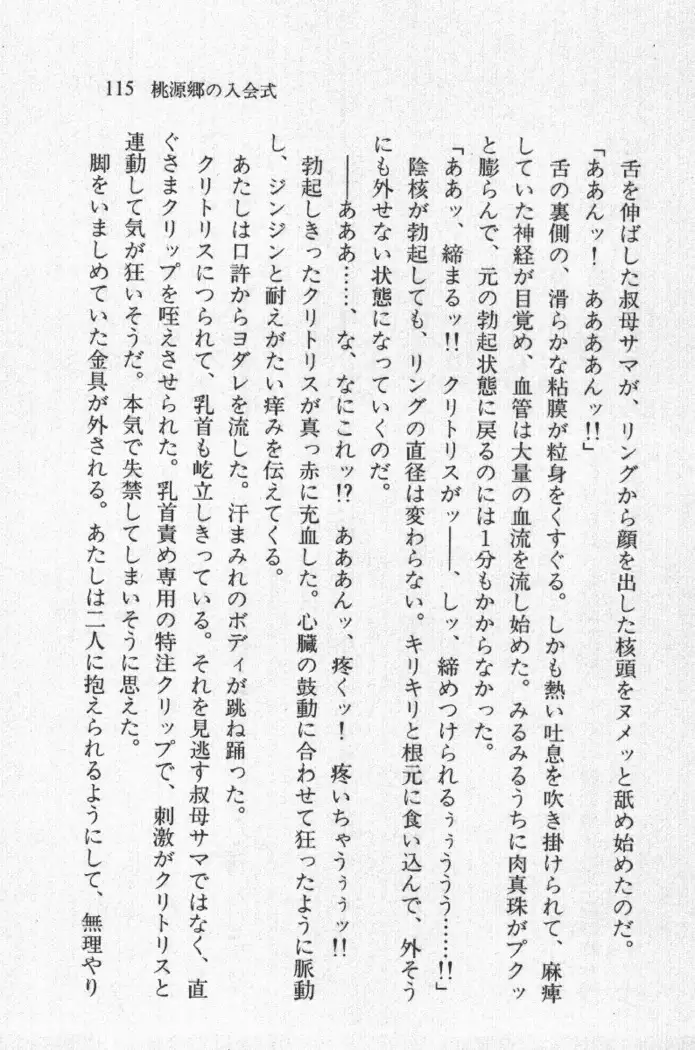 115 桃源郷の入会式
舌を伸ばした叔母サマが、リングから顔を出した核頭をヌメッと舐め始めたのだ。
「ああんッ！ ああああんッ!!」
舌の裏側の、滑らかな粘膜が粒身をくすぐる。しかも熱い吐息を吹き掛けられて、麻痺
していた神経が目覚め、血管は大量の血流を流し始めた。みるみるうちに肉真珠がプクッ
と膨らんで、元の勃起状態に戻るのには１分もかからなかった。
「ああッ、締まるッ!! クリトリスがッ――、しッ、締めつけられるぅぅううう……!!」
陰核が勃起しても、リングの直径は変わらない。キリキリと根元に食い込んで、外そう
にも外せない状態になっていくのだ。
――あああ……、な、なにこれッ!? あああんッ、疼くッ！ 疼いちゃうぅぅッ!!
勃起しきったクリトリスが真っ赤に充血した。心臓の鼓動に合わせて狂ったように脈動
し、ジンジンと耐えがたい痒みを伝えてくる。
あたしは口許からヨダレを流した。汗まみれのボディが跳ね踊った。
クリトリスにつられて、乳首も屹立しきっている。それを見逃す叔母サマではなく、直
ぐさまクリップを咥えさせられた。乳首責め専用の特注クリップで、刺激がクリトリスと
連動して気が狂いそうだ。本気で失禁してしまいそうに思えた。
脚をいましめていた金具が外される。あたしは二人に抱えられるようにして、無理やり